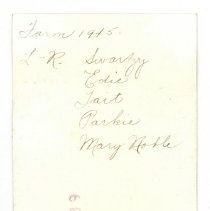 Farm 1945.
L-R. Swartzy
Edie
Tait
Parkie
Mary Noble